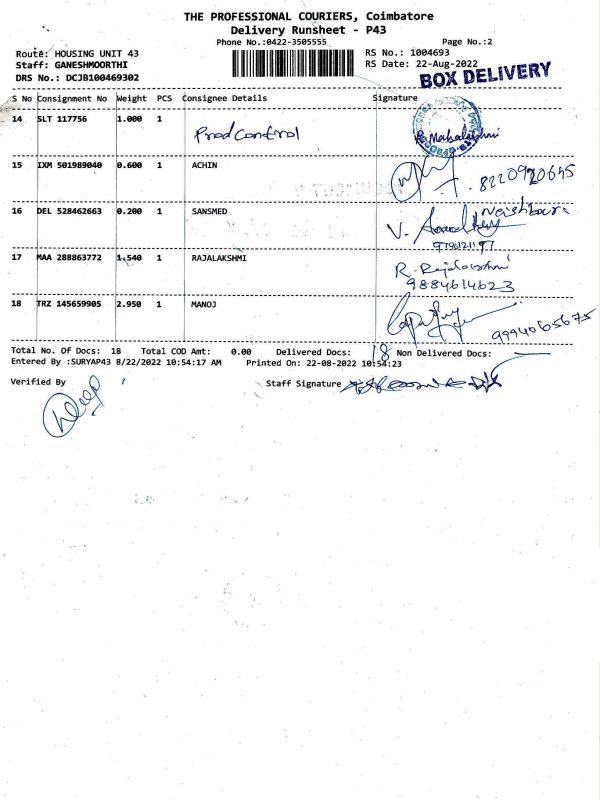 THE PROFESSIONAL COURIERS, Coimbatore
Delivery Runsheet - P43
Phone No.:0422-3505555 Page No.:2
Route: HOUSING UNIT 43 RS No.: 1004693
Staff: GANESHMOORTHI RS Date: 22-Aug-2022
DRS No.: DCJB100469302 BOX DELIVERY
S No Consignment No Weight PCS Consignee Details Signature
14 SLT 117756 1.000 1 Prod Control R. Mahalakshmi
15 IXM 501989040 0.600 1 ACHIN 8220920645
16 DEL 528462663 0.200 1 SANSMED V. Neighbour.
17 MAA 288863772 1.540 1 RAJALAKSHMI R. Rajalakshmi
9884614623
18 TRZ 145659905 2.950 1 MANOJ 9994065675
Total No. Of Docs: 18 Total COD Amt: 0.00 Delivered Docs: 18 Non Delivered Docs:
Entered By :SURYAP43 8/22/2022 10:54:17 AM Printed On: 22-08-2022 10:54:23
Verified By Staff Signature